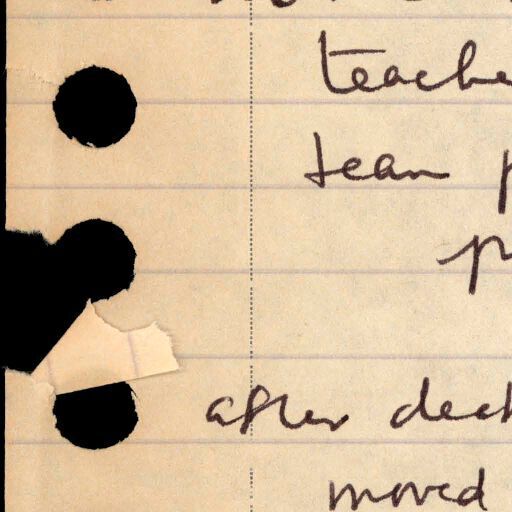 teache
team p
p
after deat
moved